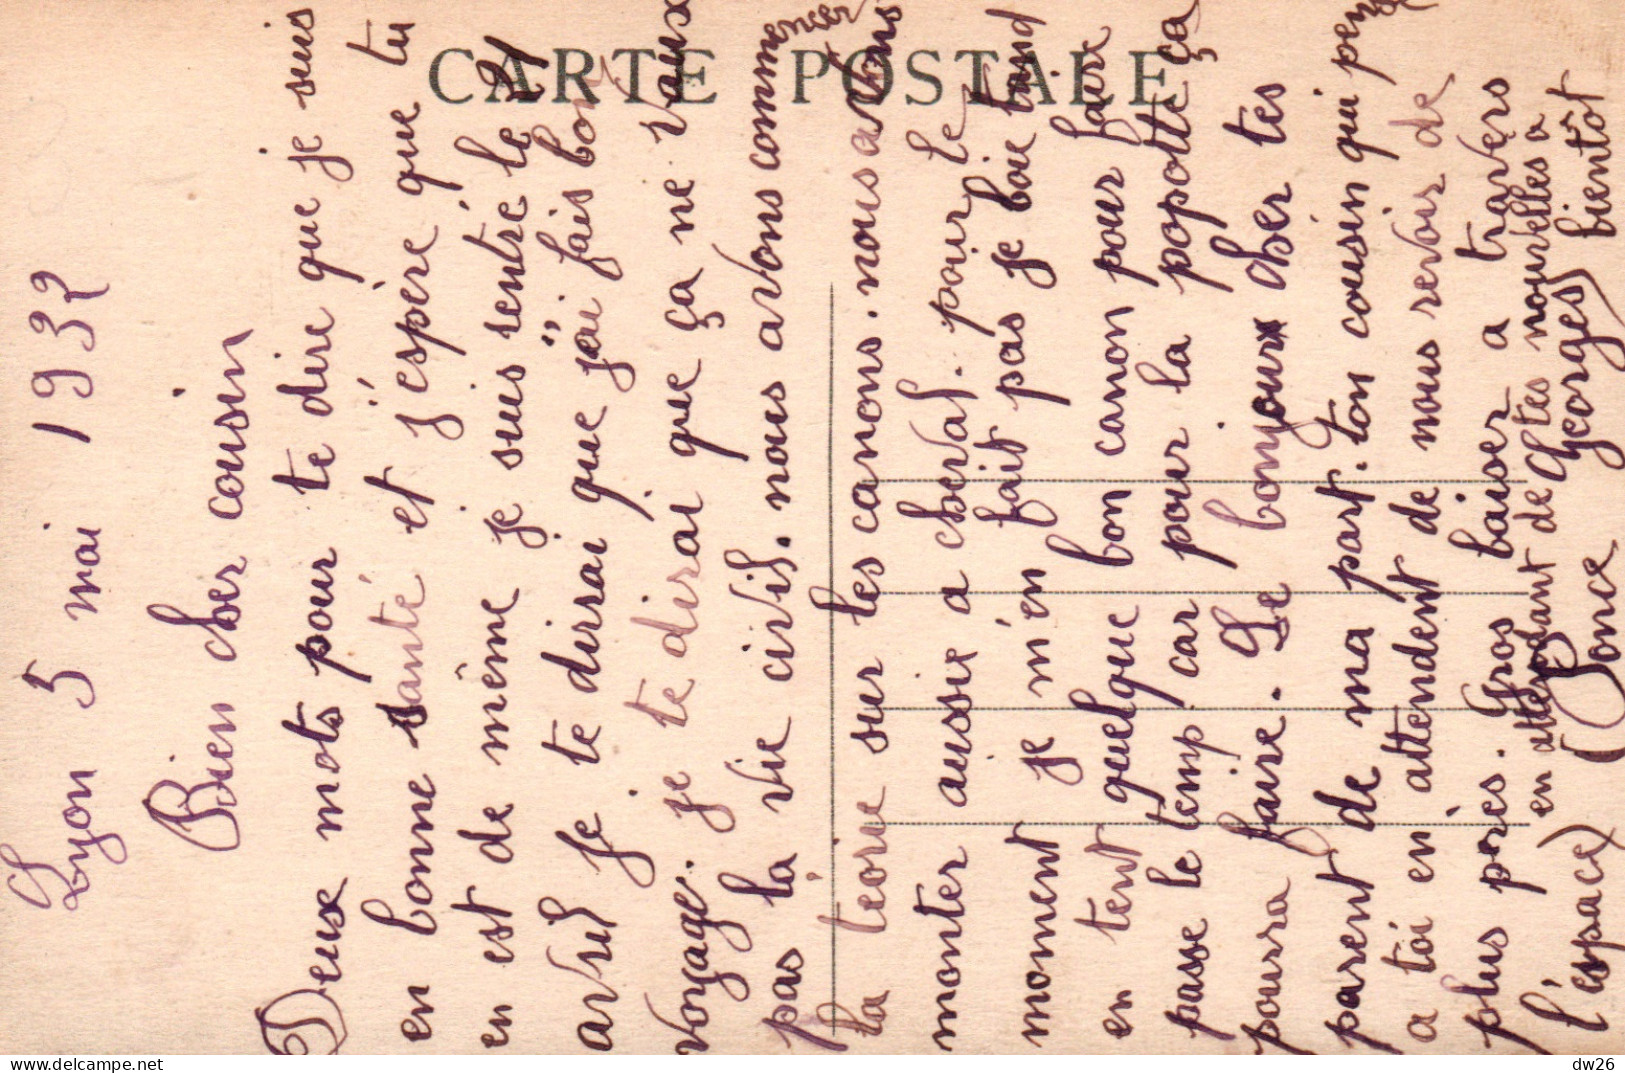 CARTE POSTALE
Lyon 5 mai 1932
Bien cher cousin
Deux mots pour te dire que je suis
en bonne santé et j'éspère que tu
en est de même je suis rentré le 21
avril je te dirrai que j'ai fais bon
voyage. je te dirai que ça ne vaux
pas la vie civil. nous avons commencer
la téorie sur les canons. nous allons
monter aussie a cheval. pour le
moment je m'en fait pas je boie tand
en tent quelque bon canon pour faire
passe le temp car pour la popotte ça
pourra faire. Le bonjour a cher tes
parent de ma part. ton cousin qui pense
a toi en attendent de nous revoir de
plus près. Gros baiser a travers
l'éspace) en attendant de tes nouvelles a
bientôt
Georges
Ponce
dw26